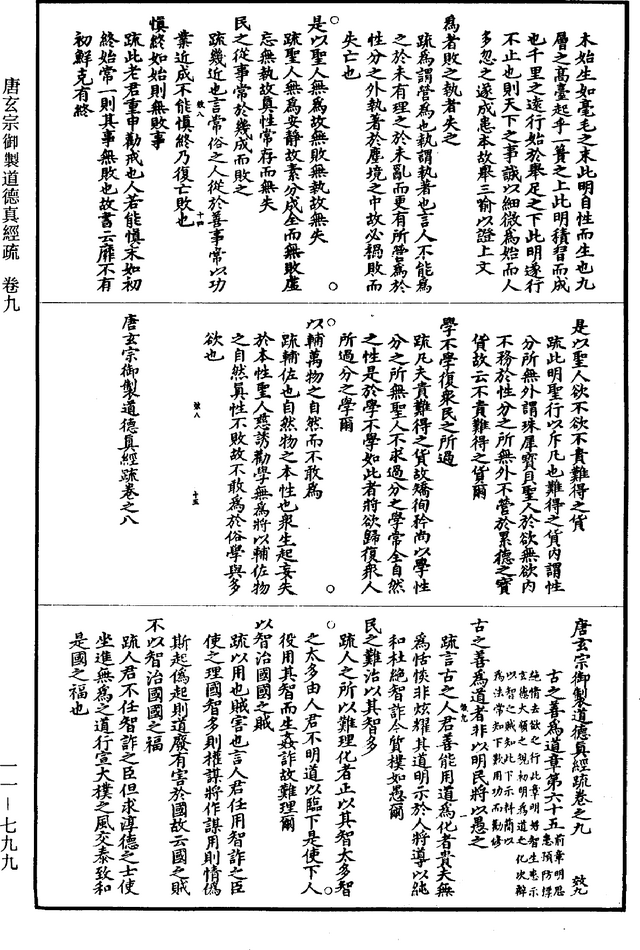 木始生如毫毛之末此明自性而生也九
層之高臺起乎一簣之上此明積習而成
也千里之遠行始於舉足之下此明遂行
不止也則天下之事誠以細微為始而人
多忽之遂成患本故舉三喻以證上文
為者敗之執者失之
疏為謂營為也執謂執著也言人不能為
之於未有理之於未亂而更有所營為於
性分之外執著於塵境之中故必禍敗而
失亡也
是以聖人無為故無敗無執故無失
疏聖人無為安靜故素分成全而無敗虛
忘無執故真性常存而無失
民之從事常於幾成而敗之
疏幾近也言常俗之人從於善事常以功
效八 十四
業近成不能慎終乃復亡敗也
慎終如始則無敗事
疏此老君重申勸戒也人若能慎末如初
終始常一則其事無敗也故書云靡不有
初鮮克有終
是以聖人欲不欲不貴難得之貨
疏此明聖行以斥凡也難得之貨內謂性
分所無外謂珠犀寶貝聖人於欲無欲內
不務於性分之所無外不營於累德之寶
貨故云不貴難得之貨爾
學不學復衆民之所過
疏凡夫貴難得之貨故矯徇矜尚以學性
分之所無聖人不求過分之學常全自然
之性是於學不學如此者將欲歸復衆人
所過分之學爾
以輔萬物之自然而不敢為
疏輔佐也自然物之本性也衆生起妄失
於本性聖人慈誘勸學無為將以輔佐物
之自然真性不敗故不敢為於俗學與多
欲也
效八 十五
唐玄宗御製道德真經疏卷之八
唐玄宗御製道德真經疏卷之九
效九
古之善為道章第六十五
古之善為道者非以明民將以愚之
疏言古之人君善能用道為化者貴夫無
為恬惔非炫耀其道明示於人將導以純
和杜絕智詐令質樸如愚爾
民之難治以其智多
疏人之所以難理化者正以其智太多智
之太多由人君不明道以臨下是使下人
役用其智而生姦詐故難理爾
以智治國國之賊
疏以用也賊害也言人君任用智詐之臣
使之理國智多則權謀將作謀用則情偽
斯起偽起則道廢有害於國故云國之賊
不以智治國國之福
疏人君不任智詐之臣但求淳德之士使
坐進無為之道行宣大樸之風交泰致和
是國之福也
唐玄宗御製道德真經疏 卷九
一一－七九九